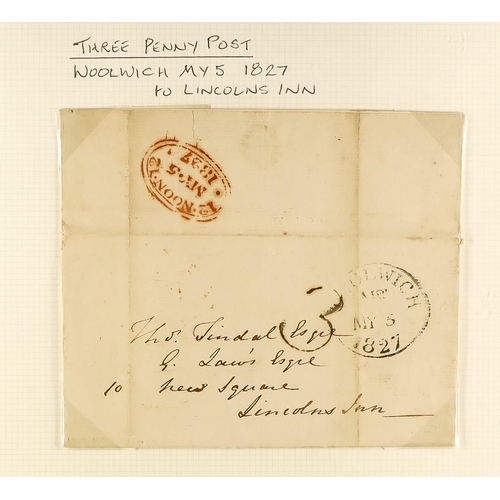 THREE PENNY POST
WOOLWICH MY 5 1827
to LINCOLNS INN
12·NOON·12
MY·5
1827
3
WOOLWICH
MY 5
1827
Thos. Tindal Esqre
G. Laws Esqre
10 New Square
Lincolns Inn